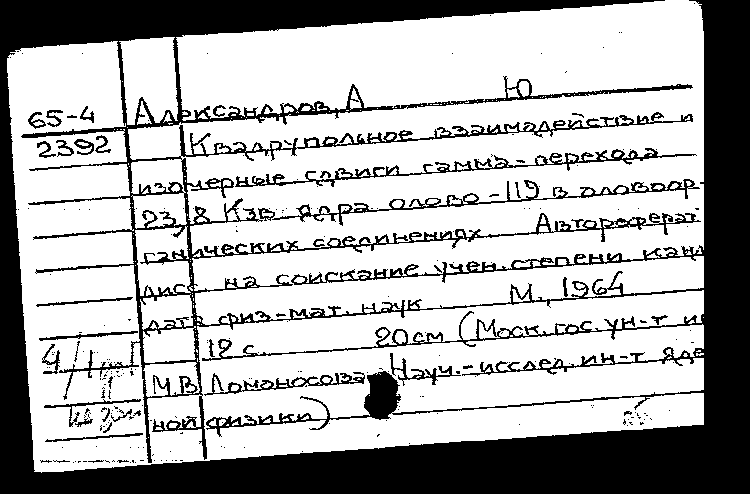 65-4 Александров, А Ю
2392 Квадрупольное взаимодействие и
изомерные сдвиги гамма-перехода
23,8 Кэв ядра олово-119 в оловоор-
ганических соединениях. Автореферат
дисс. на соискание учен. степени канд
дата физ-мат. наук М., 1964
12 с. 20см (Моск. гос. ун-т и
М.В Ломоносова Науч.-исслед. ин-т яде
ной физики)